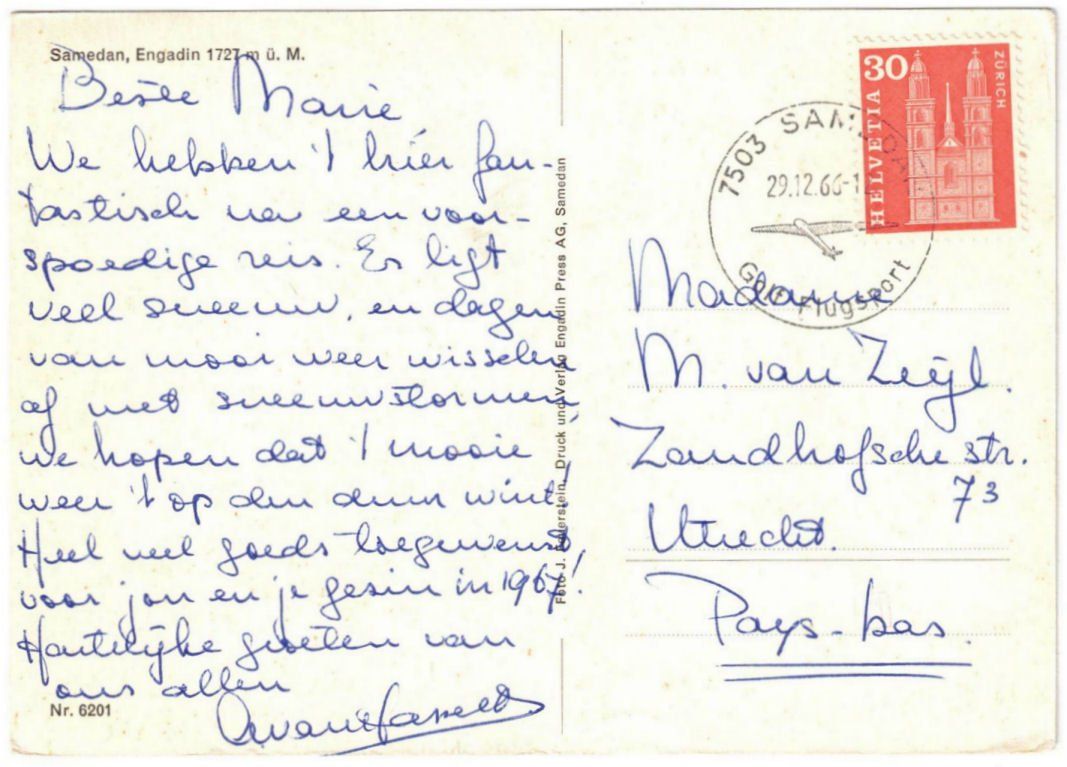 Samedan, Engadin 1727 m ü. M.
Beste Marie
We hebben 't hier fan-
tastisch na een voor-
spoedige reis. Er ligt
veel sneeuw, en dagen
van mooi weer wisselen
af met sneeuwstormen
we hopen dat 't mooie
weer 't op den duur wint!
Heel veel goeds toegewenst,
voor jou en je gezin in 1967!
Hartelijke groeten van
ons allen
Nr. 6201
Foto J. Feuerstein, Druck und Verlag Engadin Press AG, Samedan
HELVETIA
30
ZÜRICH
7503 SAMEDAN
29.12.66-1
Golf Flugsport
Madame
M. van Zeijl.
Zandhofsche str.
73
Utrecht.
Pays-bas.